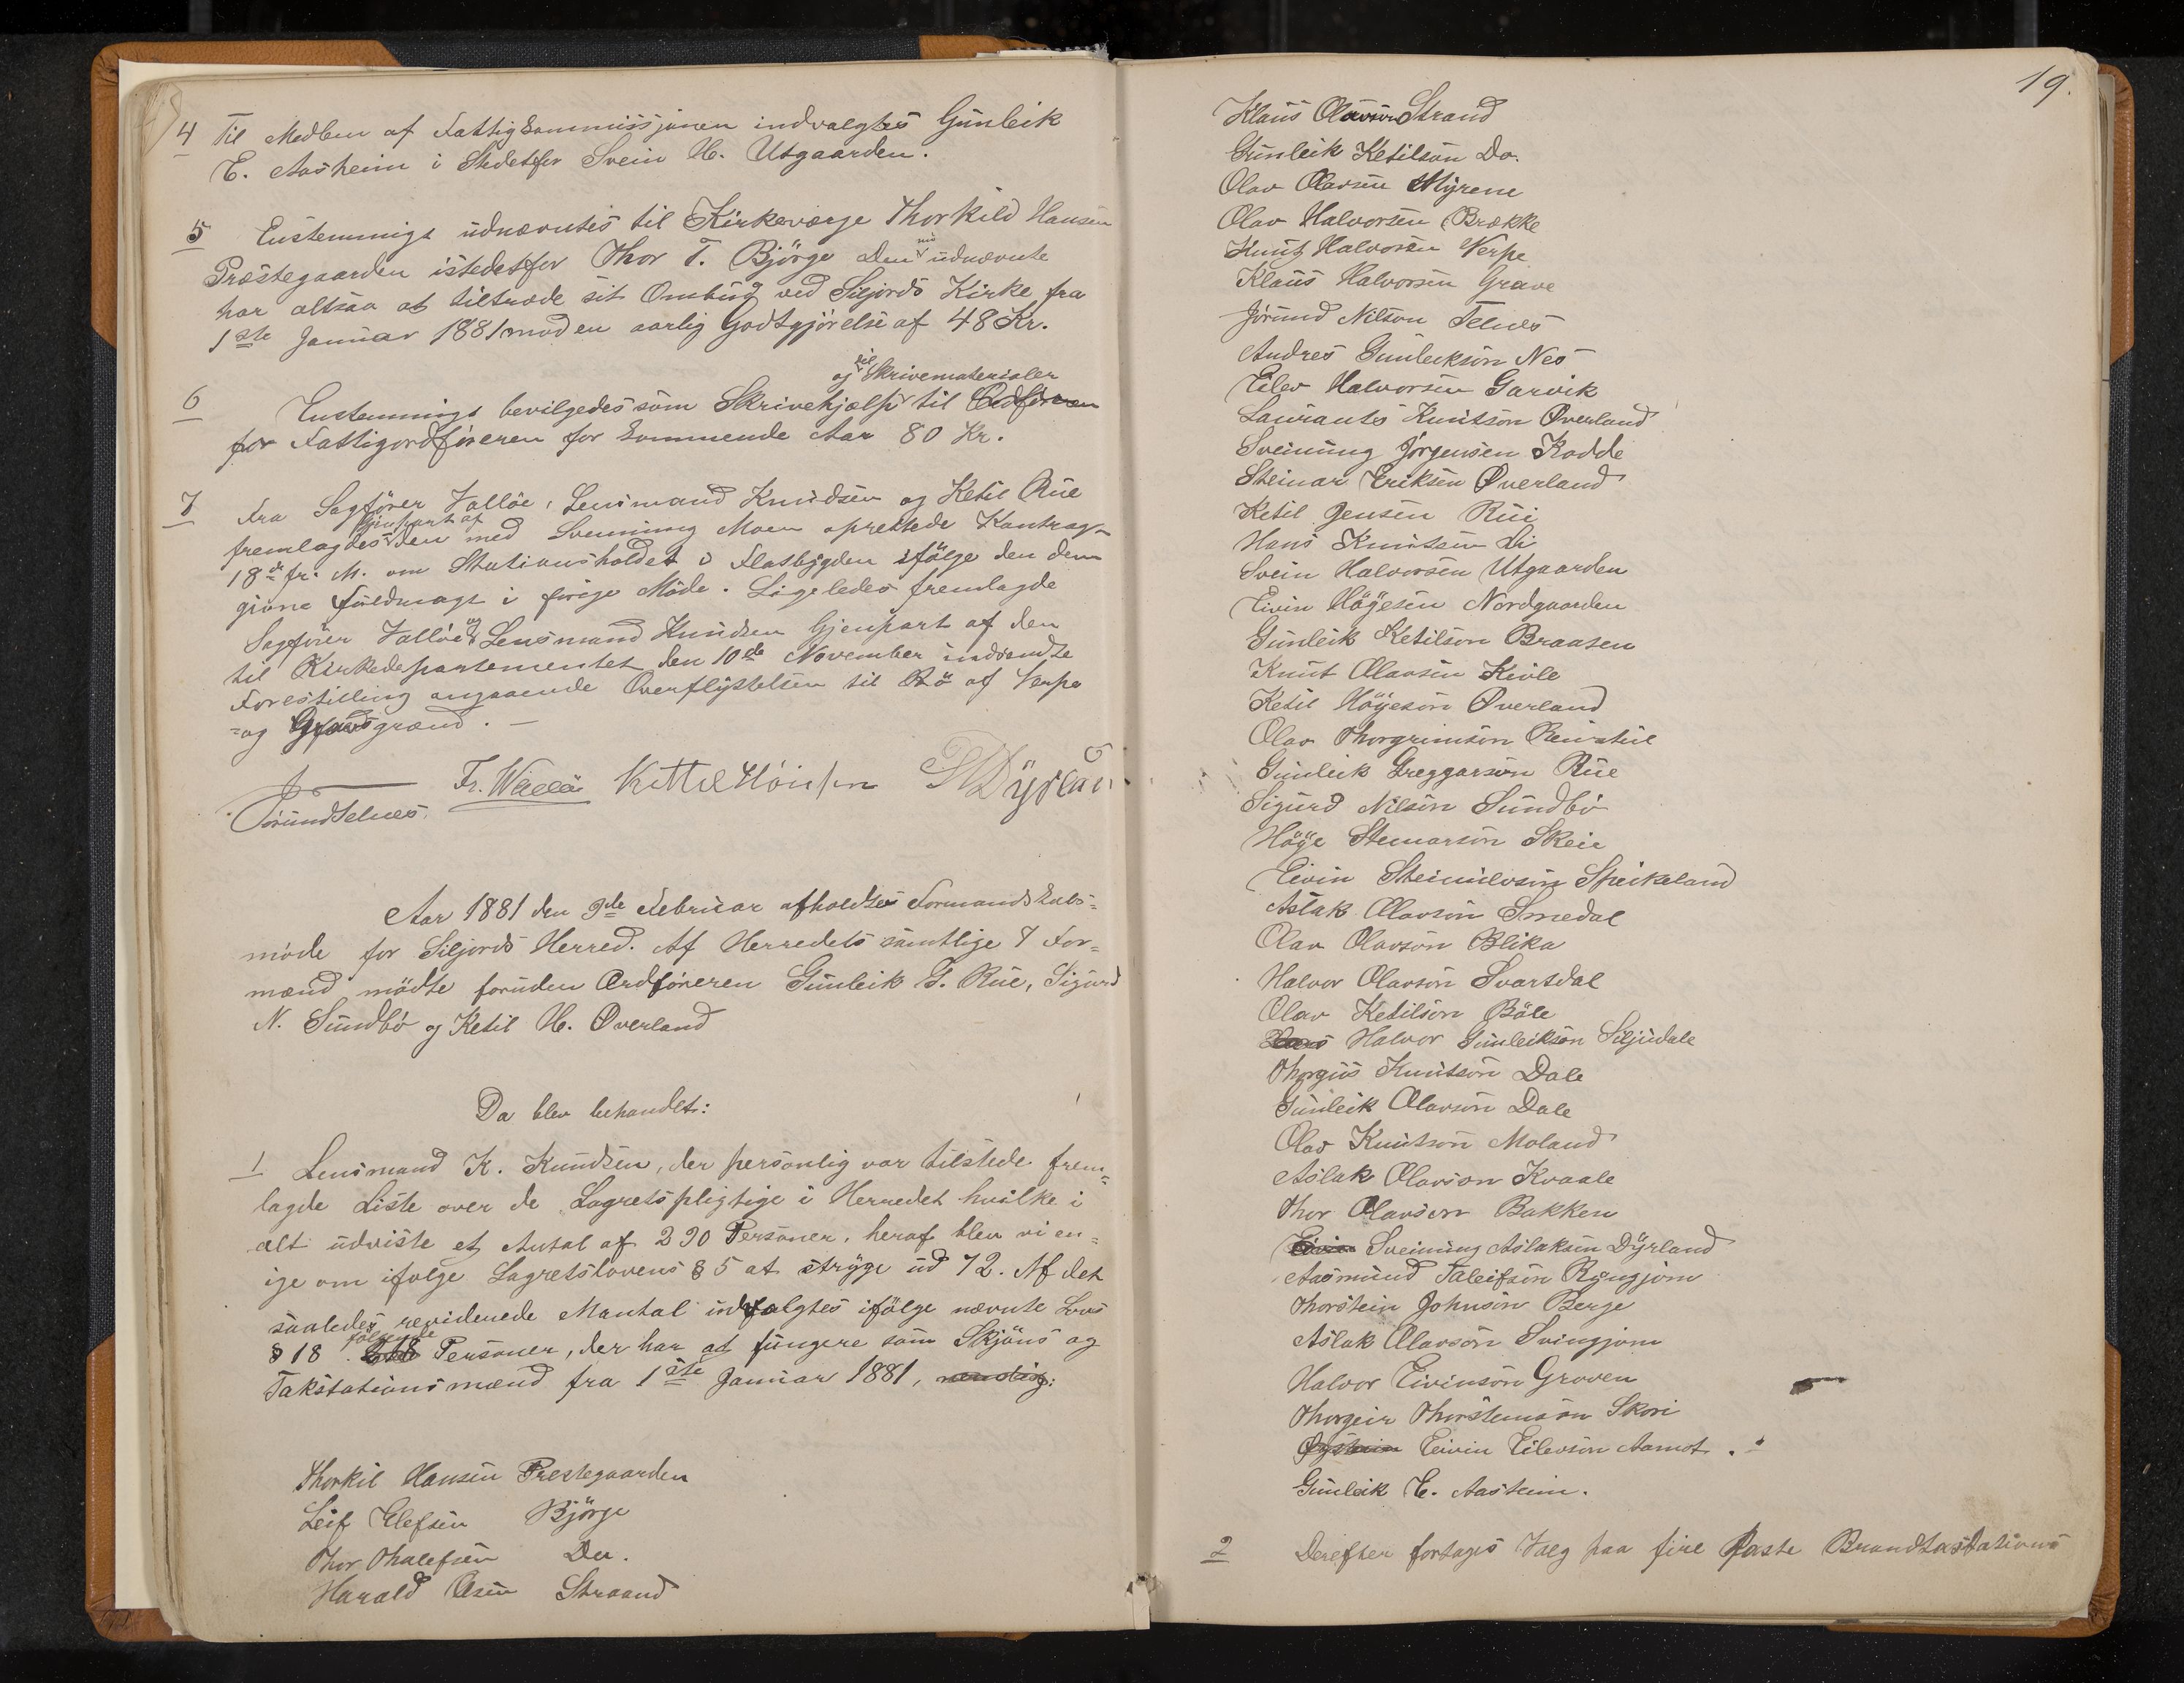 4 Til Medlem af Fattigkommissjonen indvalgtes Gunleik
E. Aasheim i Stedetfor Svein H. Utgaarden.
5 Enstemmigt udnævntes til Kirkeværge Thorkild Hansen
Præstegaarden istedetfor Thor T. Björge den nu udnævnte
har altsaa at tiltræde sit Ombud ved Siljords Kirke fra
1ste Januar 1881 mod en aarlig Godtgjörelse af 48 Kr.
og til Skrivematerialer
6 Enstemmigt bevilgedes som Skrivehjælp til Ordföreren
for Fattigordföreren for kommende Aar 80 Kr.
7 Fra Sagförer Vallöe, Lensmand Knudsen og Ketil Rue
Gjenpart af
fremlagdes den med Svenning Moen oprettede Kontragt
18de fr. M. om Stationsholdet i Flatbygden ifölge den dem
givne Fuldmagt i forige Möde. Ligeledes fremlagde
Sagförer Vallöe og Lensmand Knudsen Gjenpart af den
til Kirkedepartementet den 10de November indsendte
Forestilling angaaende Overflyttelsen til Bö af Verpe
og Gravsgrænd. —
Fr. Wallöe Kittel Höiesen S A Dyrlan
Jörund Telnes
Aar 1881 den 9de Februar afholdtes Formandskabs=
möde for Siljords Herred. Af Herredets samtlige 7 For=
mænd mödte foruden Ordföreren Gunleik G. Rue, Sigurd
N. Sundbö og Ketil H. Överland
Da blev behandlet:
1 Lensmand K. Knudsen, der personlig var tilstede frem=
lagde Liste over de Lagretspligtige i Herredet hvilke i
alt udviste et Antal af 290 Personer, heraf blev vi en=
ige om ifölge Lagretslovens § 5 at stryge ud 72. Af det
saaledes reviderede Mantal indvalgtes ifölge nævnte Lovs
fölgende
§ 18 Personer, der har at fungere som Skjöns og
Takstationsmænd fra 1ste Januar 1881, nemlig:
Thorkil Hansen Prestegaarden
Leif Elefsen Björge
Thor Thalefsen Do.
Harald Osen Straand
19.
Klaus Olavson Strand
Gunleik Ketilson Do.
Olav Olavsen Myrene
Olav Halvorsen Brække
Knut Halvorsen Verpe
Klaus Halvorsen Grave
Jörund Nilson Telnes
Andres Gunleikson Nes
Eilev Halvorsen Garvik
Laurantes Knutson Överland
Sveinung Jörgensen Kodde
Steinar Eriksen Överland
Ketil Jensen Rui
Hans Knutsen Li
Svein Halvorsen Utgaarden
Eivin Höyesen Nordgaarden
Gunleik Ketilson Braasen
Knut Olavsen Kivle
Ketil Höyeson Överland
Olav Thorgrimson Reinstul
Gunleik Greggarson Rue
Sigurd Nilson Sundbö
Höye Steinarson Skeie
Eivin Steinulvson Speikeland
Aslak Olavson Smedal
Olav Olavson Blika
Halvor Olavson Svartdal
Olav Ketilson Böle
Halvor Gunleikson Siljudale
Thorgus Knutson Dale
Gunleik Olavson Dale
Olav Knutson Moland
Aslak Olavson Kvaale
Thor Olavson Bakken
Eivin Sveinung Aslaksen Dyrland
Aasmund Taleifson Ryngjom
Thorstein Johnson Berge
Aslak Olavson Svingjom
Halvor Eivinson Groven
Thorgeir Thorsteinson Skori
Öystein Eivin Eilevson Aamot.
Gunleik E. Aasheim.
2 Derefter fortoges Valg paa fire faste Brandtakstations